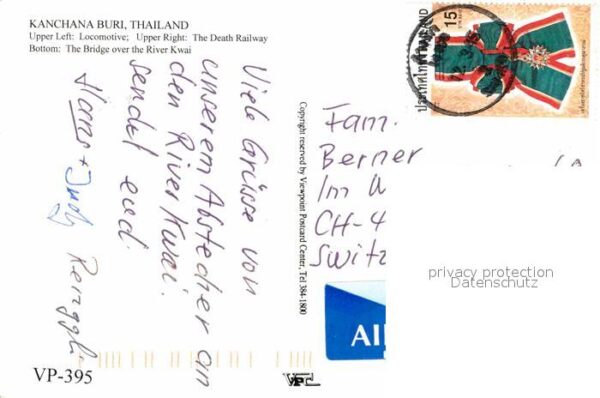 KANCHANA BURI, THAILAND
Upper Left: Locomotive; Upper Right: The Death Railway
Bottom: The Bridge over the River Kwai
Viele Grüsse von
unserem Abstecher an
den River Kwai.
sendet euch
Hans + Judy Renggli
VP-395
Copyright reserved by Viewpoint Postcard Center, Tel 384-1800
VPC
ประเทศไทย THAILAND
15
Fam.
Berner
Im W
CH-4
Switz
AI
privacy protection
Datenschutz